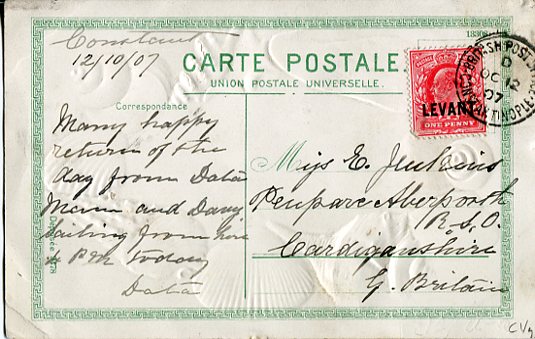 Constant
12/10/07
18308
CARTE POSTALE.
UNION POSTALE UNIVERSELLE.
Correspondance
BRITISH POST OFFICE
CONSTANTINOPLE
D
OC 12
07
LEVANT
ONE PENNY
Many happy
return of the
day from Data
Mama and Davy
Sailing from here
4 P.M. Today
Data
Miss E. Jenkins
Penparc Aberporth
R.S.O.
Cardiganshire
G. Britain